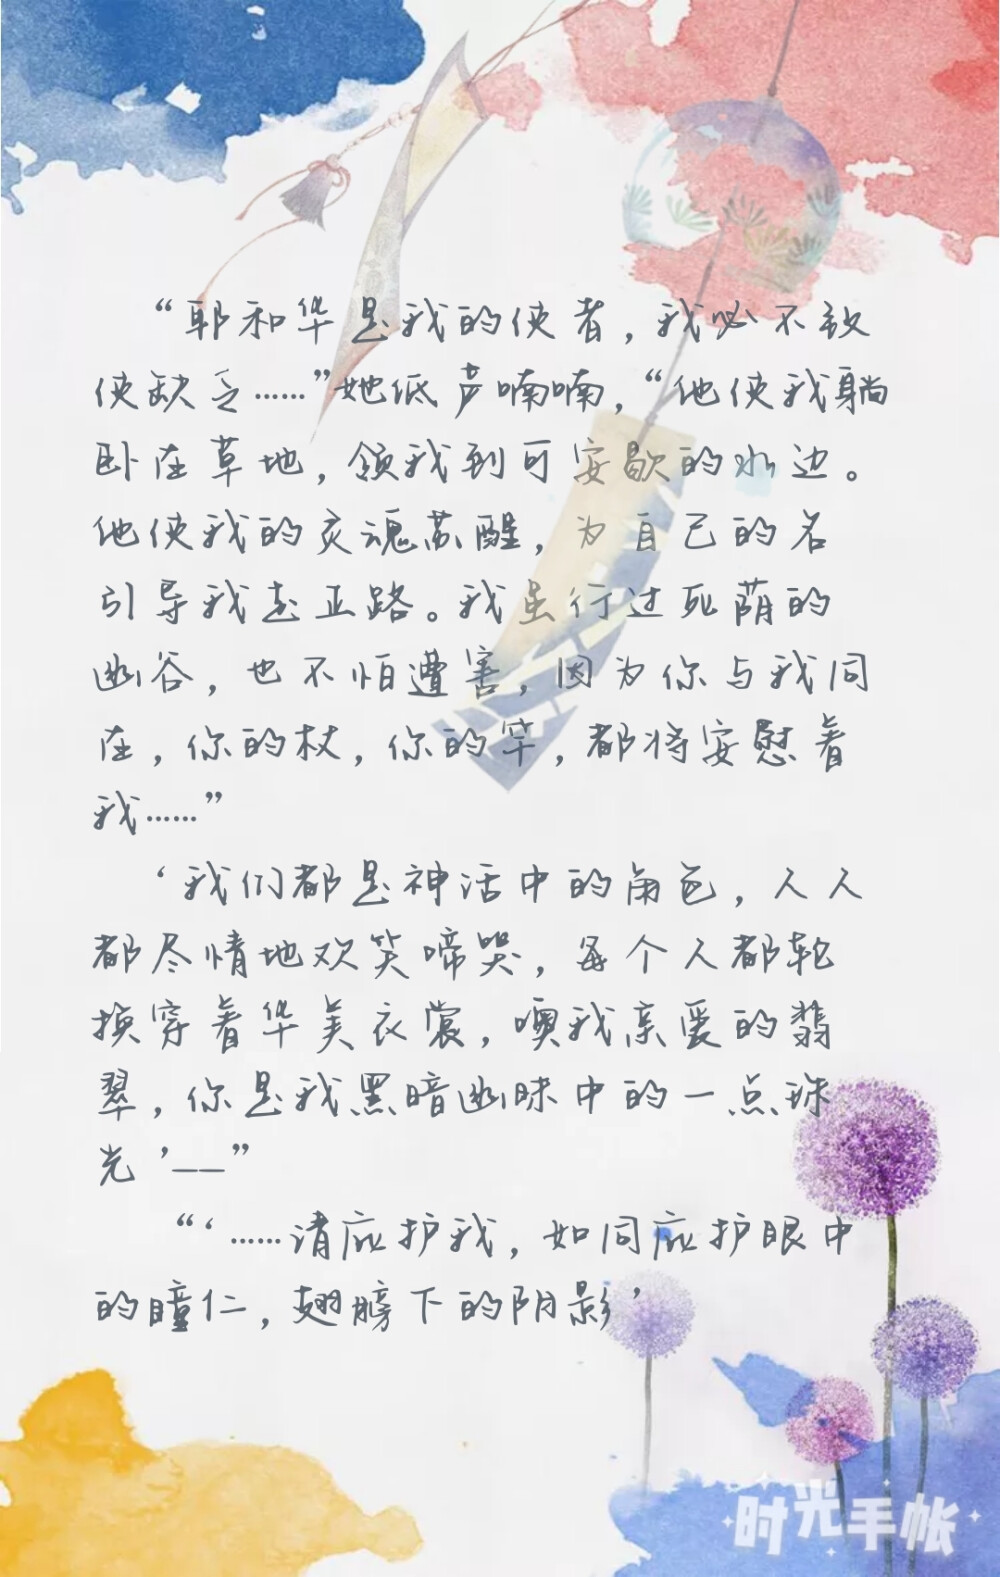 “耶和华是我的使者，我必不致
使缺乏……”她低声喃喃，“他使我躺
卧在草地，领我到可安歇的水边。
他使我的灵魂苏醒，为自己的名
引导我走正路。我虽行过死荫的
幽谷，也不怕遭害，因为你与我同
在，你的杖，你的竿，都将安慰着
我……”
‘我们都是神话中的角色，人人
都尽情地欢笑啼哭，每个人都轮
换穿着华美衣裳，噢我亲爱的翡
翠，你是我黑暗幽昧中的一点珠
光’——”
“‘……请庇护我，如同庇护眼中
的瞳仁，翅膀下的阴影’
时光手帐